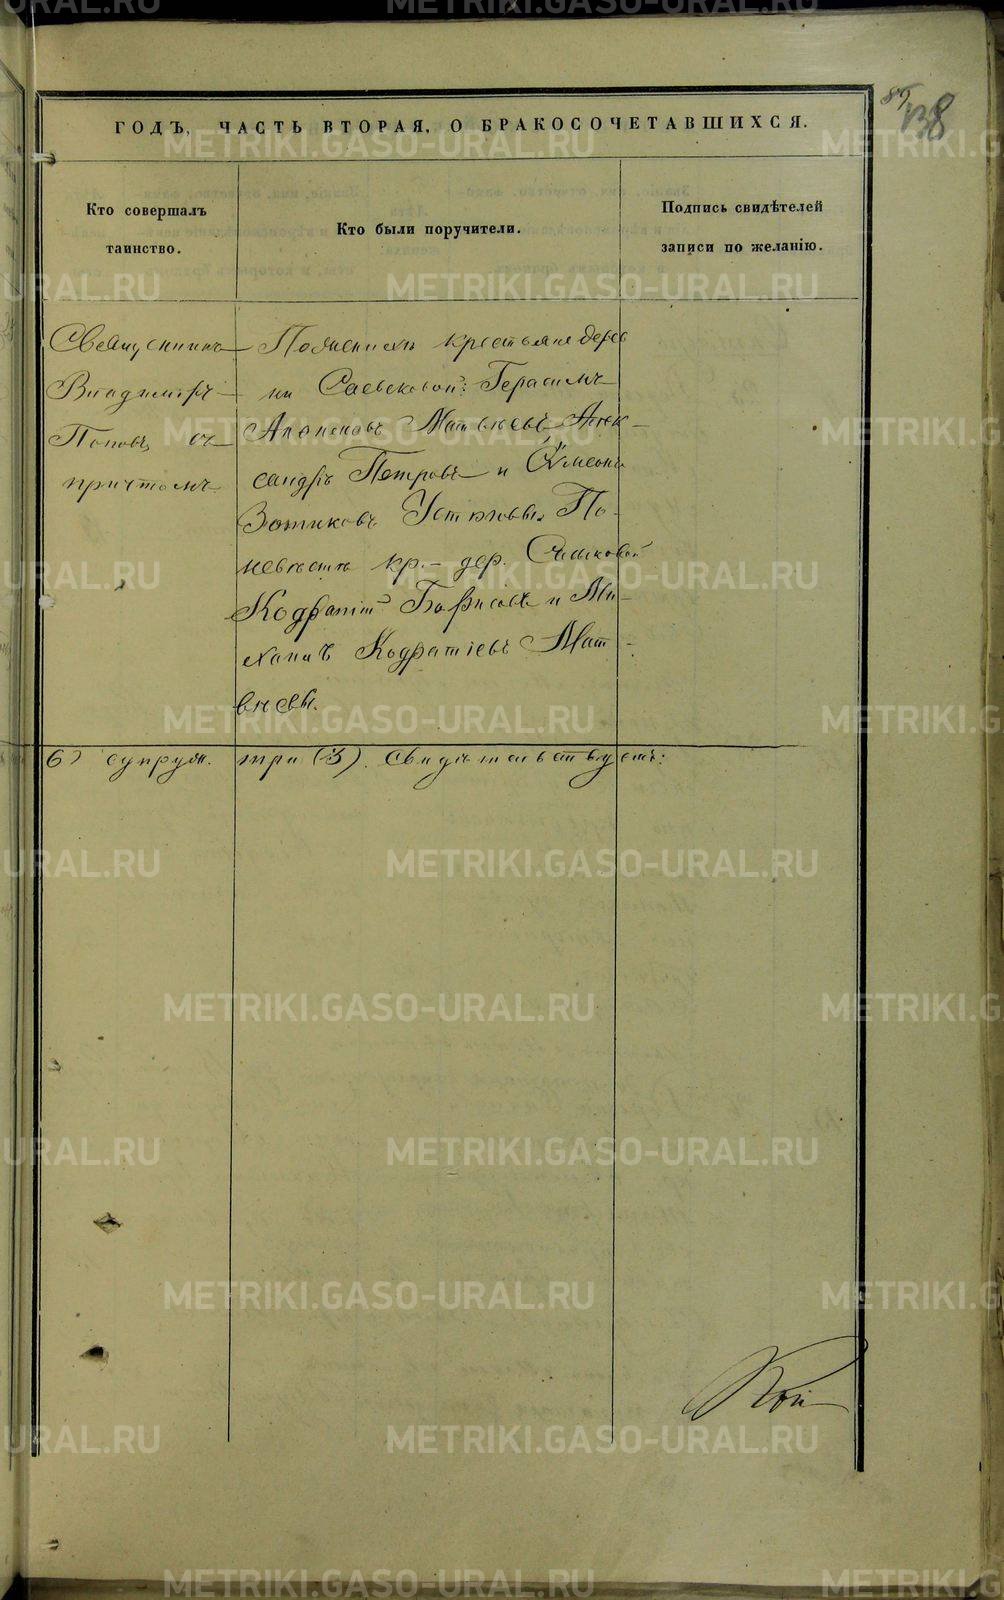 89
138
ГОДЪ, ЧАСТЬ ВТОРАЯ, О БРАКОСОЧЕТАВШИХСЯ.
Кто совершалъ
таинство.
Кто были поручители.
Подпись свидѣтелей
записи по желанію.
Священникъ
Владиміръ
Поповъ, съ
причтомъ
По женихѣ крестьяне дерев
ни Саевсковой: Герасимъ
Матвѣевъ Алек-
сандръ Петровъ и Симеонъ
Зотиковъ Устюговы По
невѣстѣ кр. дер.
Кодратій Борисовъ и Ми-
хаилъ Кодратіевъ Мат-
вѣевы.
6) супруж. три (3). Свидѣтельствуетъ:
METRIKI.GASO-URAL.RU